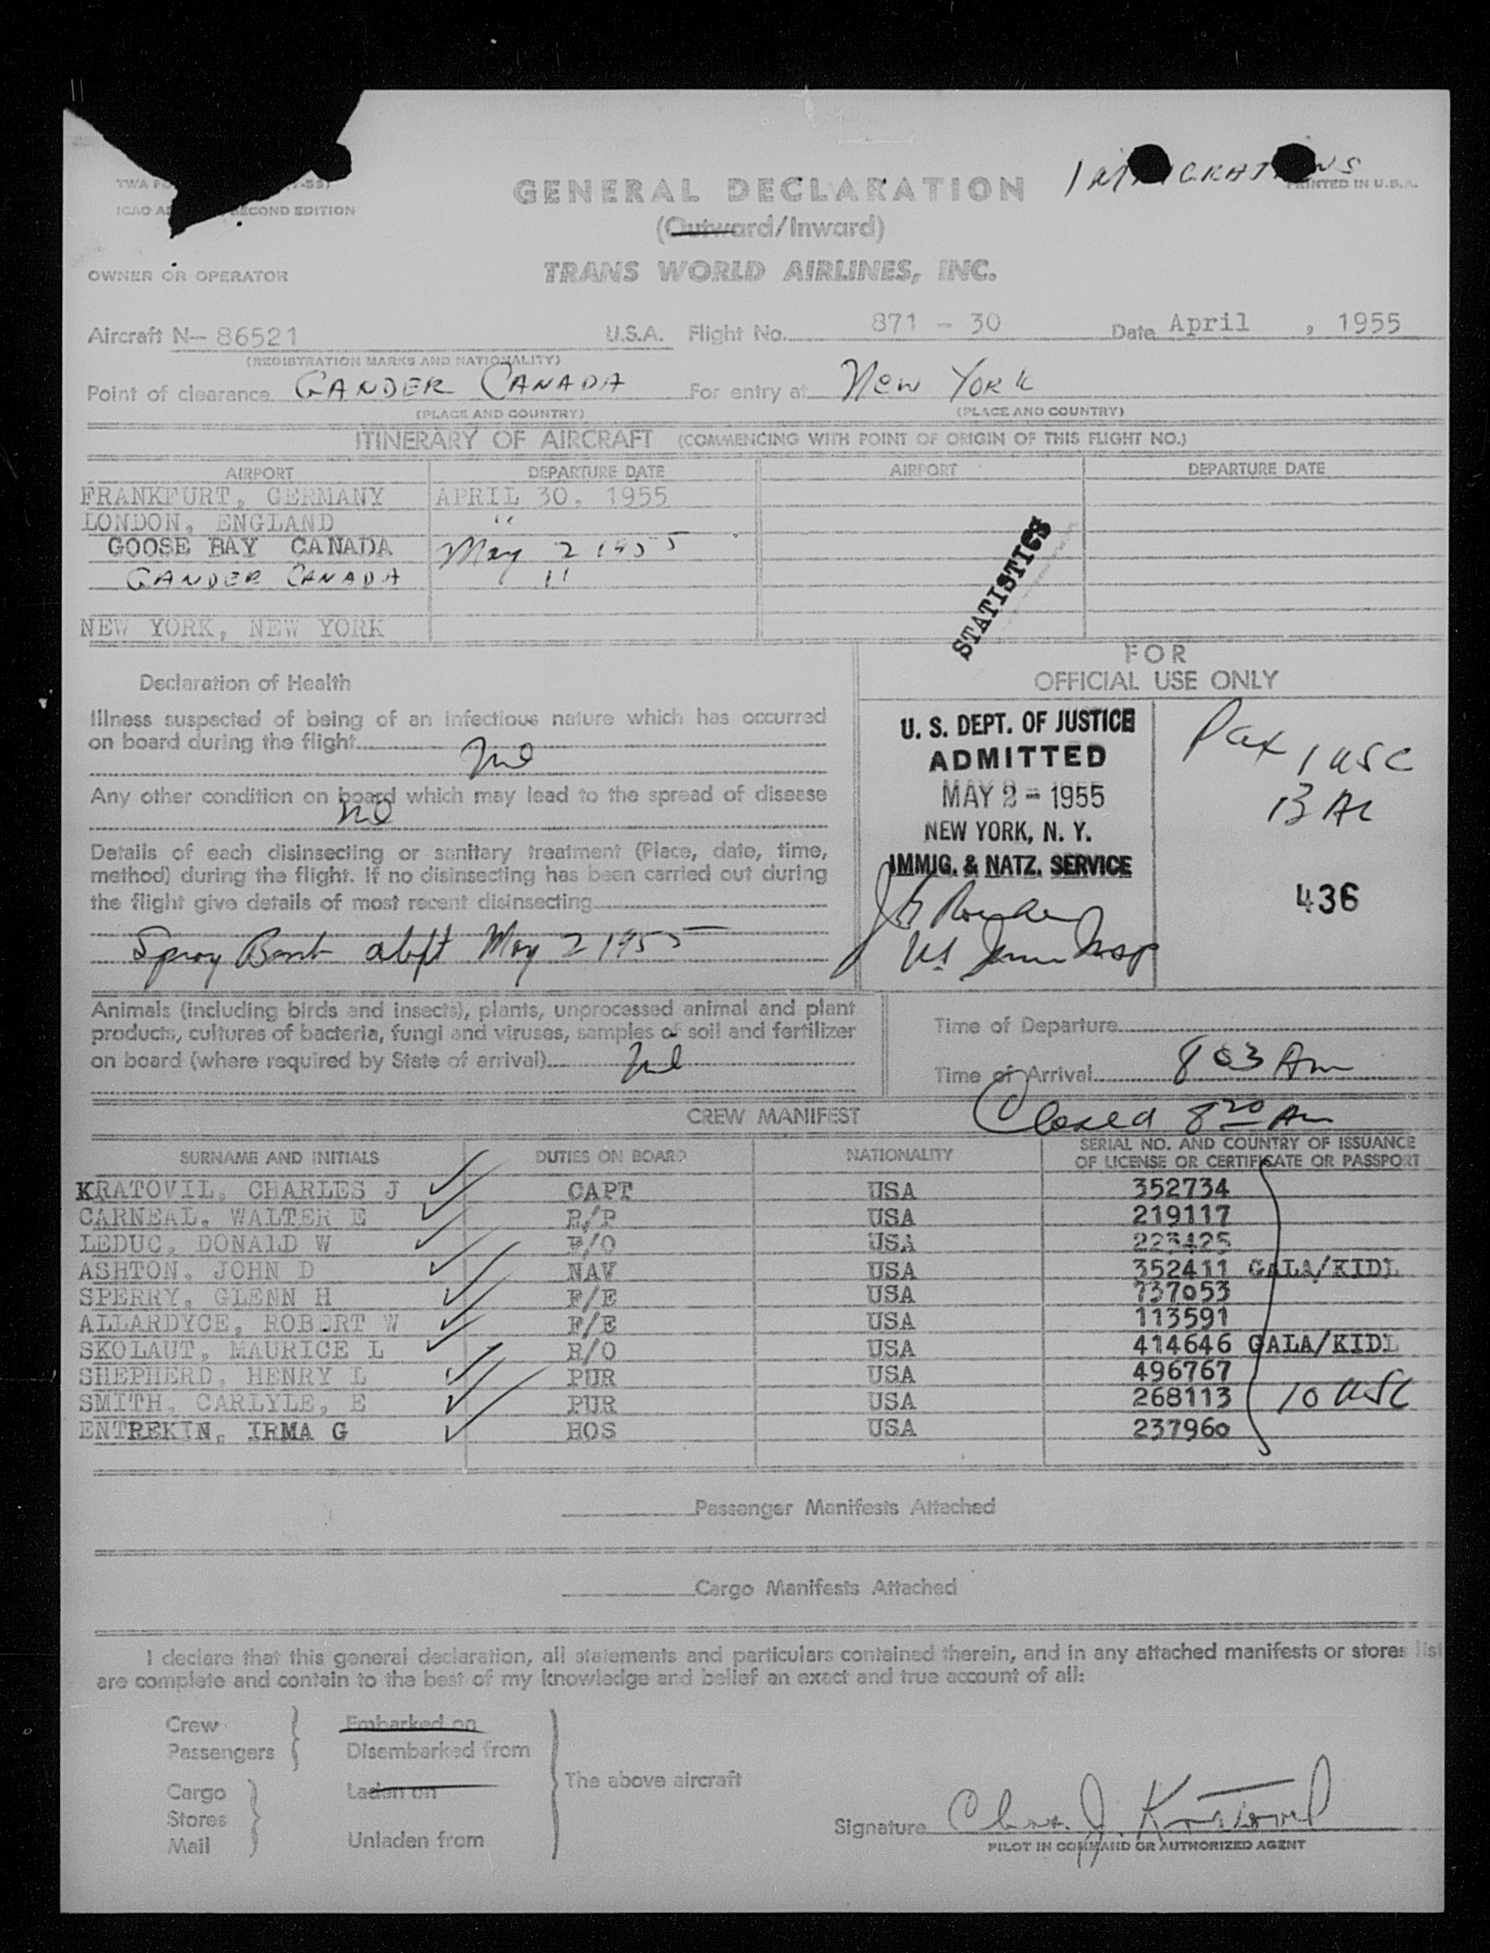 IMMIGRATIONS
TWA FO
ICAO A SECOND EDITION
PRINTED IN U.S.A.
GENERAL DECLARATION
(Outward/Inward)
OWNER OR OPERATOR TRANS WORLD AIRLINES, INC.
Aircraft N- 86521 U.S.A. Flight No. 871 - 30 Date April , 1955
(REGISTRATION MARKS AND NATIONALITY)
Point of clearance GANDER CANADA For entry at New YORK
(PLACE AND COUNTRY) (PLACE AND COUNTRY)
ITINERARY OF AIRCRAFT (COMMENCING WITH POINT OF ORIGIN OF THIS FLIGHT NO.)
AIRPORT DEPARTURE DATE AIRPORT DEPARTURE DATE
FRANKFURT, GERMANY APRIL 30, 1955
LONDON, ENGLAND "
GOOSE BAY CANADA May 2 1955
GANDER CANADA "
NEW YORK, NEW YORK
STATISTICS
Declaration of Health
Illness suspected of being of an infectious nature which has occurred
on board during the flight
Nil
Any other condition on board which may lead to the spread of disease
nil
Details of each disinsecting or sanitary treatment (Place, date, time,
method) during the flight. If no disinsecting has been carried out during
the flight give details of most recent disinsecting
Spray Bomb aloft May 2 1955
FOR
OFFICIAL USE ONLY
U. S. DEPT. OF JUSTICE
ADMITTED
MAY 2 - 1955
NEW YORK, N. Y.
IMMIG. & NATZ. SERVICE
US Imm Insp
Pax 1 USC
13 AL
436
Animals (including birds and insects), plants, unprocessed animal and plant
products, cultures of bacteria, fungi and viruses, samples of soil and fertilizer
on board (where required by State of arrival) Nil
Time of Departure
Time of Arrival 8 03 Am
Closed 8 20 Am
CREW MANIFEST
SURNAME AND INITIALS DUTIES ON BOARD NATIONALITY SERIAL NO. AND COUNTRY OF ISSUANCE
OF LICENSE OR CERTIFICATE OR PASSPORT
KRATOVIL, CHARLES J CAPT USA 352734
CARNEAL, WALTER E R/P USA 219117
LEDUC, DONALD W F/O USA 223425
ASHTON, JOHN D NAV USA 352411 GALA/KIDL
SPERRY, GLENN H F/E USA 737053
ALLARDYCE, ROBERT W F/E USA 113591
SKOLAUT, MAURICE L R/O USA 414646 GALA/KIDL
SHEPHERD, HENRY L PUR USA 496767
SMITH, CARLYLE, E PUR USA 268113 10 USC
ENTREKIN, IRMA G HOS USA 237960
Passenger Manifests Attached
Cargo Manifests Attached
I declare that this general declaration, all statements and particulars contained therein, and in any attached manifests or stores list
are complete and contain to the best of my knowledge and belief an exact and true account of all:
Crew Embarked on
Passengers Disembarked from
The above aircraft
Cargo Laden on
Stores
Mail Unladen from
Signature Chas. J. Kratovil
PILOT IN COMMAND OR AUTHORIZED AGENT